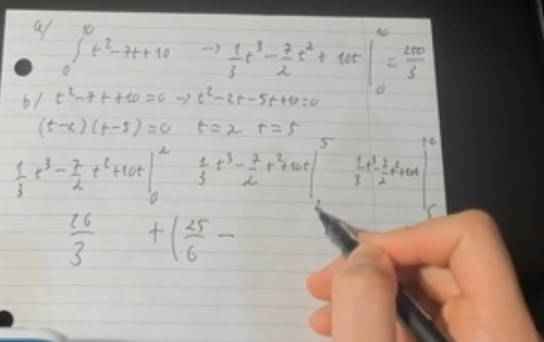 a/
∫₀¹⁰ t²-7t+10 → 1/3 t³ - 7/2 t² + 10t |₀¹⁰ = 250/3
b/ t²-7t+10=0 → t²-2t-5t+10=0
(t-2)(t-5)=0 t=2 t=5
1/3 t³ - 7/2 t²+10t |₀² 1/3 t³ - 7/2 t²+10t |₂⁵ 1/3 t³ - 7/2 t²+10t |₅¹⁰
26/3 + (25/6 -